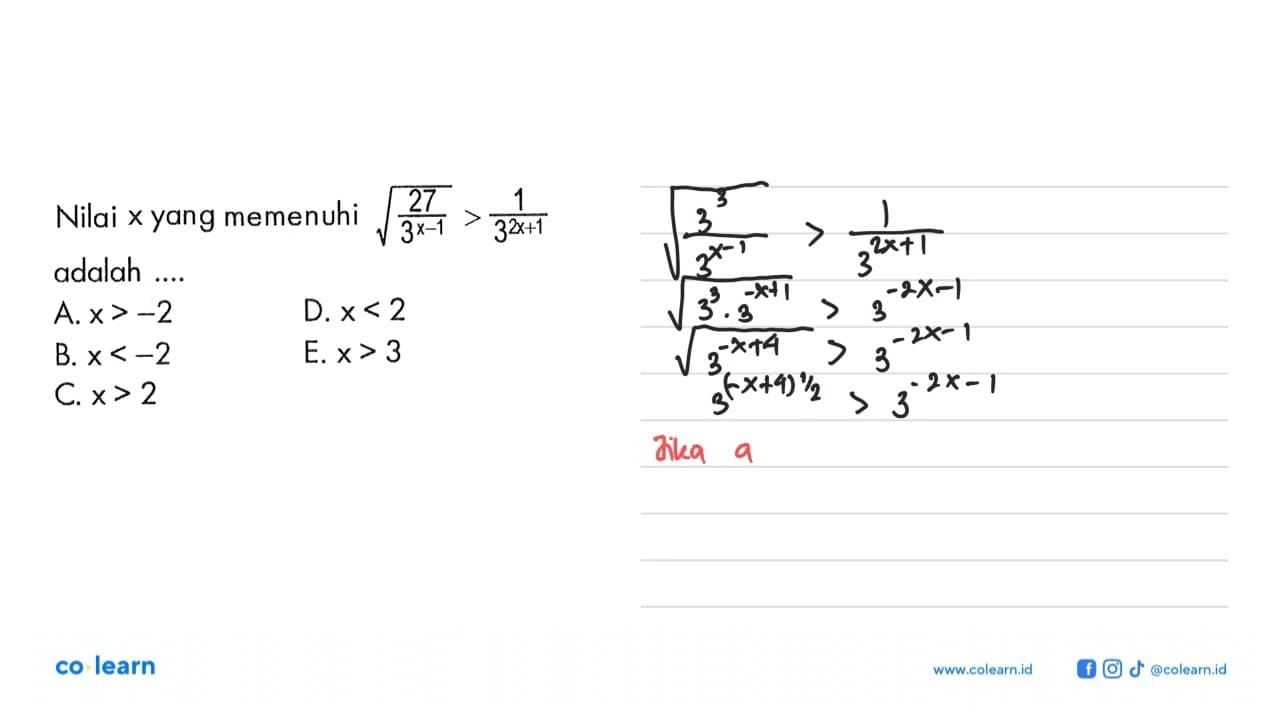 Nilai x yang memenuhi √(27/3^(x–1)) > 1/3^(2x+1)
adalah ....
A. x > –2
B. x < –2
C. x > 2
D. x < 2
E. x > 3
√(3^3/3^(x-1)) > 1/3^(2x+1)
√(3^3 . 3^(-x+1)) > 3^(-2x-1)
√(3^(-x+4)) > 3^(-2x-1)
3^((-x+4) 1/2) > 3^(-2x-1)
Jika a
co learn
www.colearn.id
@colearn.id